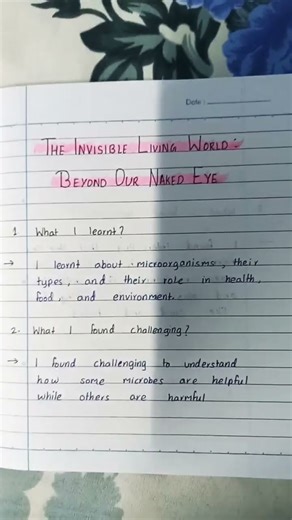 Date :
THE INVISIBLE LIVING WORLD :
BEYOND OUR NAKED EYE
1 What I learnt?
→ I learnt about microorganisms, their
types, and their role in health,
food, and environment.
2. What I found challenging?
→ I found challenging to understand
how some microbes are helpful
while others are harmful